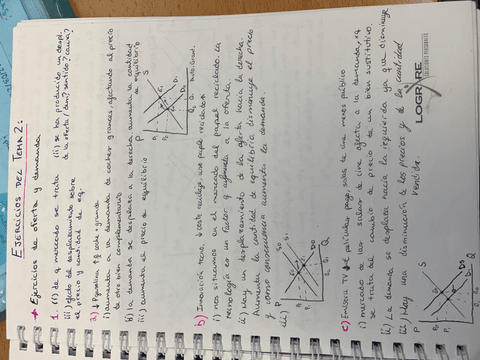 EJERCICIOS DEL TEMA 2:
→ Ejercicios de oferta y demanda
1. (i) De mercado se trata (ii) se ha producido un despl. de la oferta / dam? sentido? causa?
iii) efecto del desplazamiento sobre el precio y cantidad de eq.
a) ↓ P gasolina ↑ Q coche + grande
i) aumentará a la demanda de coches grandes, afectando al precio de otro bien complementario
ii) la demanda se desplaza a la derecha, aumenta la cantidad
iii) aumenta el precio de equilibrio
P
S
D1
D0
P1
P0
Q0 Q1
Q
b) Innovación tecno. ↓ coste reciclaje, use papel reciclado
i) nos situamos en el mercado del papel reciclado. La tecnología es un factor q afecta a la oferta
ii) Hay un desplazamiento de la oferta hacia la derecha. Aumenta la cantidad de equilibrio disminuye el precio y como consecuencia aumenta la demanda
iii)
P
S0
S1
D0
P0
P1
Q0 Q1
Q
c) Emisora TV películas pago, salas de cine menos público
i) mercado de las salas de cine afecta a la demanda, xq se trata del cambio de precio de un bien sustitutivo.
ii) La demanda se desplaza hacia la izquierda ya que disminuye
iii) Hay una disminución de los precios y de la cantidad vendida.
P
S
D0
D1
P0
P1
Q1 Q0
Q
LOGRARE